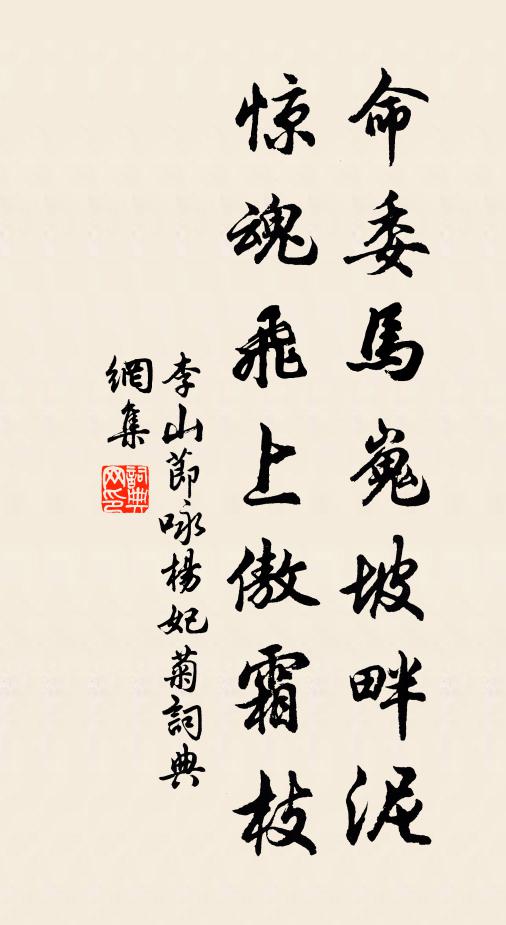 命委馬嵬坡畔泥
惊魂飛上傲霜枝
李山節咏楊妃菊詞典
網集
詞典網印